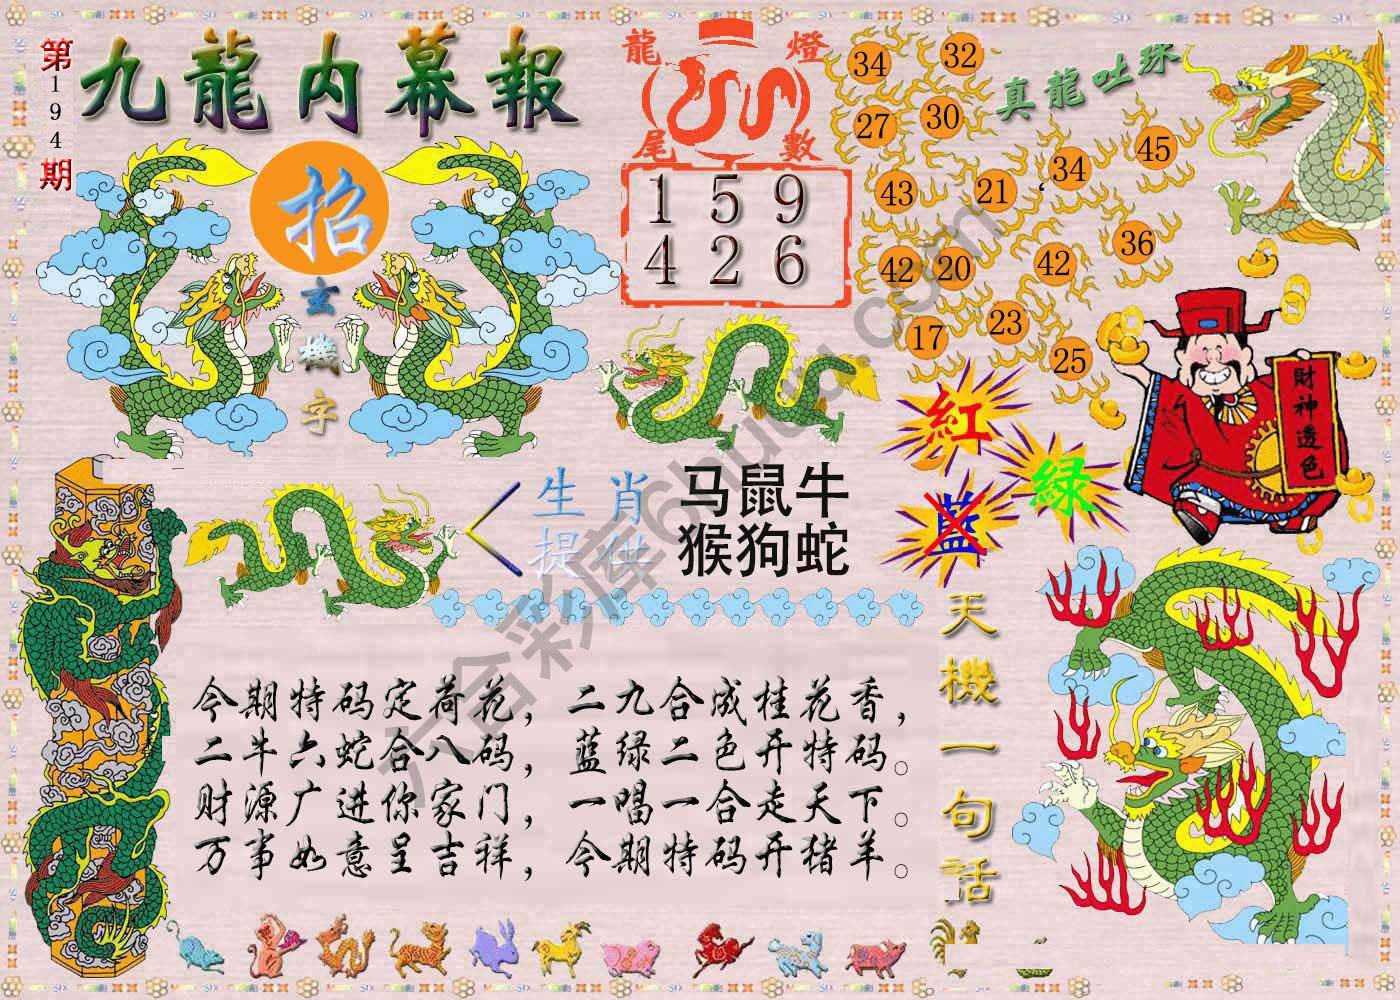 第194期
九龍内幕報
招
玄機字
龍燈尾數
1 5 9
4 2 6
真龍吐珠
34 32
27 30
43 21 34 45
42 20 42 36
17 23 25
財神透色
紅
藍 綠
生肖提供
马鼠牛
猴狗蛇
天機一句話
今期特码定荷花，二九合成桂花香，
二牛六蛇合八码，蓝绿二色开特码。
财源广进你家门，一唱一合走天下。
万事如意呈吉祥，今期特码开猪羊。